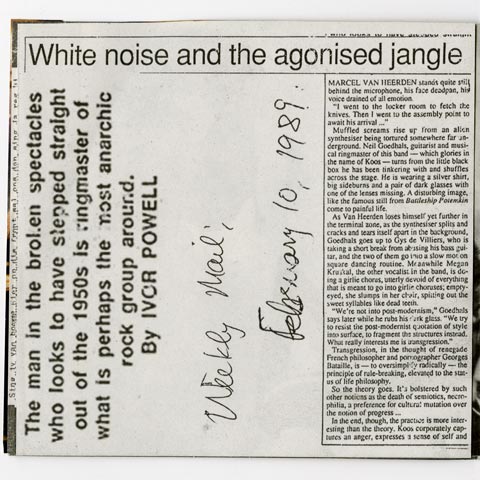 White noise and the agonised jangle
The man in the broken spectacles
who looks to have stepped straight
out of the 1950s is ringmaster of
what is perhaps the most anarchic
rock group around.
By IVOR POWELL
Weekly Mail,
February 10, 1989.
MARCEL VAN HEERDEN stands quite still
behind the microphone, his face deadpan, his
voice drained of all emotion.
"I went to the locker room to fetch the
knives. Then I went to the assembly point to
await his arrival ..."
Muffled screams rise up from an alien
synthesiser being tortured somewhere far un-
derground. Neil Goedhals, guitarist and musi-
cal ringmaster of this band — which glories in
the name of Koos — turns from the little black
box he has been tinkering with and shuffles
across the stage. He is wearing a silver shirt,
big sideburns and a pair of dark glasses with
one of the lenses missing. A disturbing image,
like the famous still from Battleship Potemkin
come to painful life.
As Van Heerden loses himself yet further in
the terminal zone, as the synthesiser splits and
cracks and tears itself apart in the background,
Goedhals goes up to Gys de Villiers, who is
taking a short break from abusing his bass gui-
tar, and the two of them go into a slow motion
square dancing routine. Meanwhile Megan
Kruskal, the other vocalist in the band, is do-
ing a girlie chorus, utterly devoid of everything
that is meant to go into girlie choruses; empty-
eyed, she slumps in her chair, spitting out the
sweet syllables like dead teeth.
"We're not into post-modernism," Goedhals
says later while he rubs his dark glass. "We try
to resist the post-modernist quotation of style
into surface, to fragment the structures instead.
What really interests me is transgression."
Transgression, in the thought of renegade
French philosopher and pornographer Georges
Bataille, is — to oversimplify radically — the
principle of rule-breaking, elevated to the stat-
us of life philosophy.
So the theory goes. It's bolstered by such
other notions as the death of semiotics, necro-
philia, a preference for cultural mutation over
the notion of progress ...
In the end, though, the practice is more inter-
esting than the theory. Koos corporately cap-
tures an anger, expresses a sense of self and